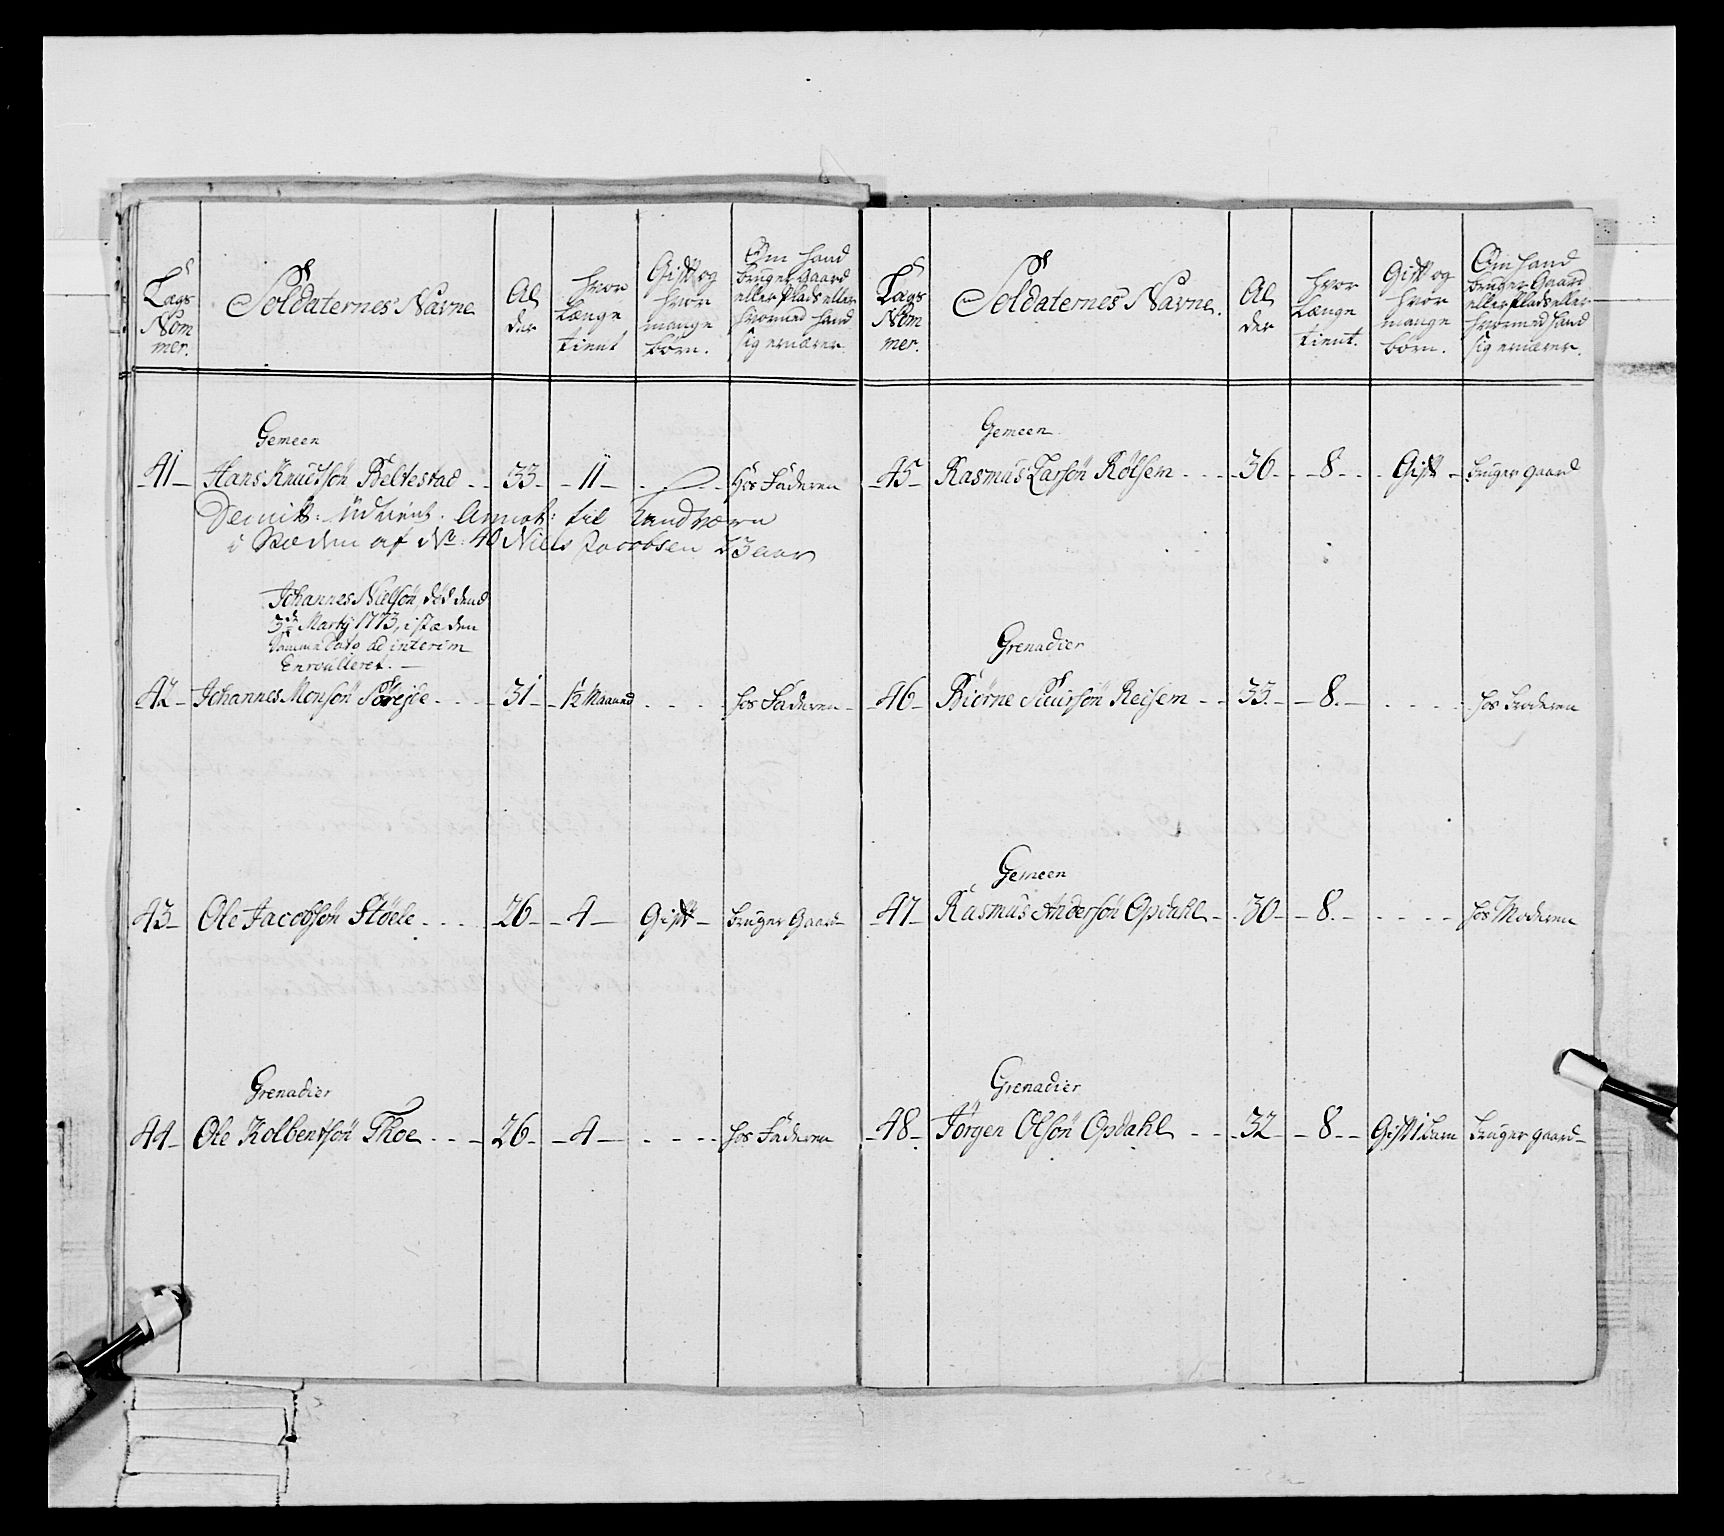 Lags Nom mer.
Soldaternes Navne
Al der
hvor Længe tient
Gift og hvor mange børn.
Om hand bruger Gaard eller Plads eller hvormed hand sig ernærer.
Gemeen
41 Hans Knudsøn Beltestad 33 11 Hos Faderen
Demitt: Udtient. Annot: til Landværn
i Stæden af No: 40 Niels Jacobsen 23 aar
Johannes Nielsøn, død dend
3de Martij 1773, i stæden
Samme Dato ad interim
Enroulleret.
42 Johannes Monsøn Sørejde 31 1½ Maaned hos Faderen
43 Ole Jacobsøn Støele 26 4 Gift bruger Gaard
Grenadier
44 Ole Kolbentsøn Thoe 26 4 hos Faderen
Lags Nom mer.
Soldaternes Navne.
Al der
hvor Længe tient.
Gift og hvor mange børn.
Om hand bruger Gaard eller Plads eller hvormed hand sig ernærer.
Gemeen
45 Rasmus Larsøn Rølsem 36 8 Gift bruger gaard
Grenadier
46 Biørne Siursøn Reisem 33 8 hos broderen
Gemeen
47 Rasmus Andersøn Opdahl 30 8 hos Moderen
Grenadier
48 Jørgen Olsøn Opdahl 32 8 Gift 1 barn bruger gaard